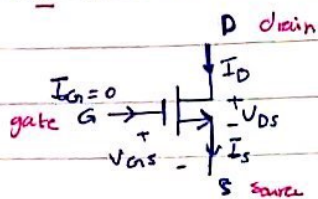 D drain
I_D
I_G=0
gate G + V_DS
-
+ I_S
V_GS -
S source